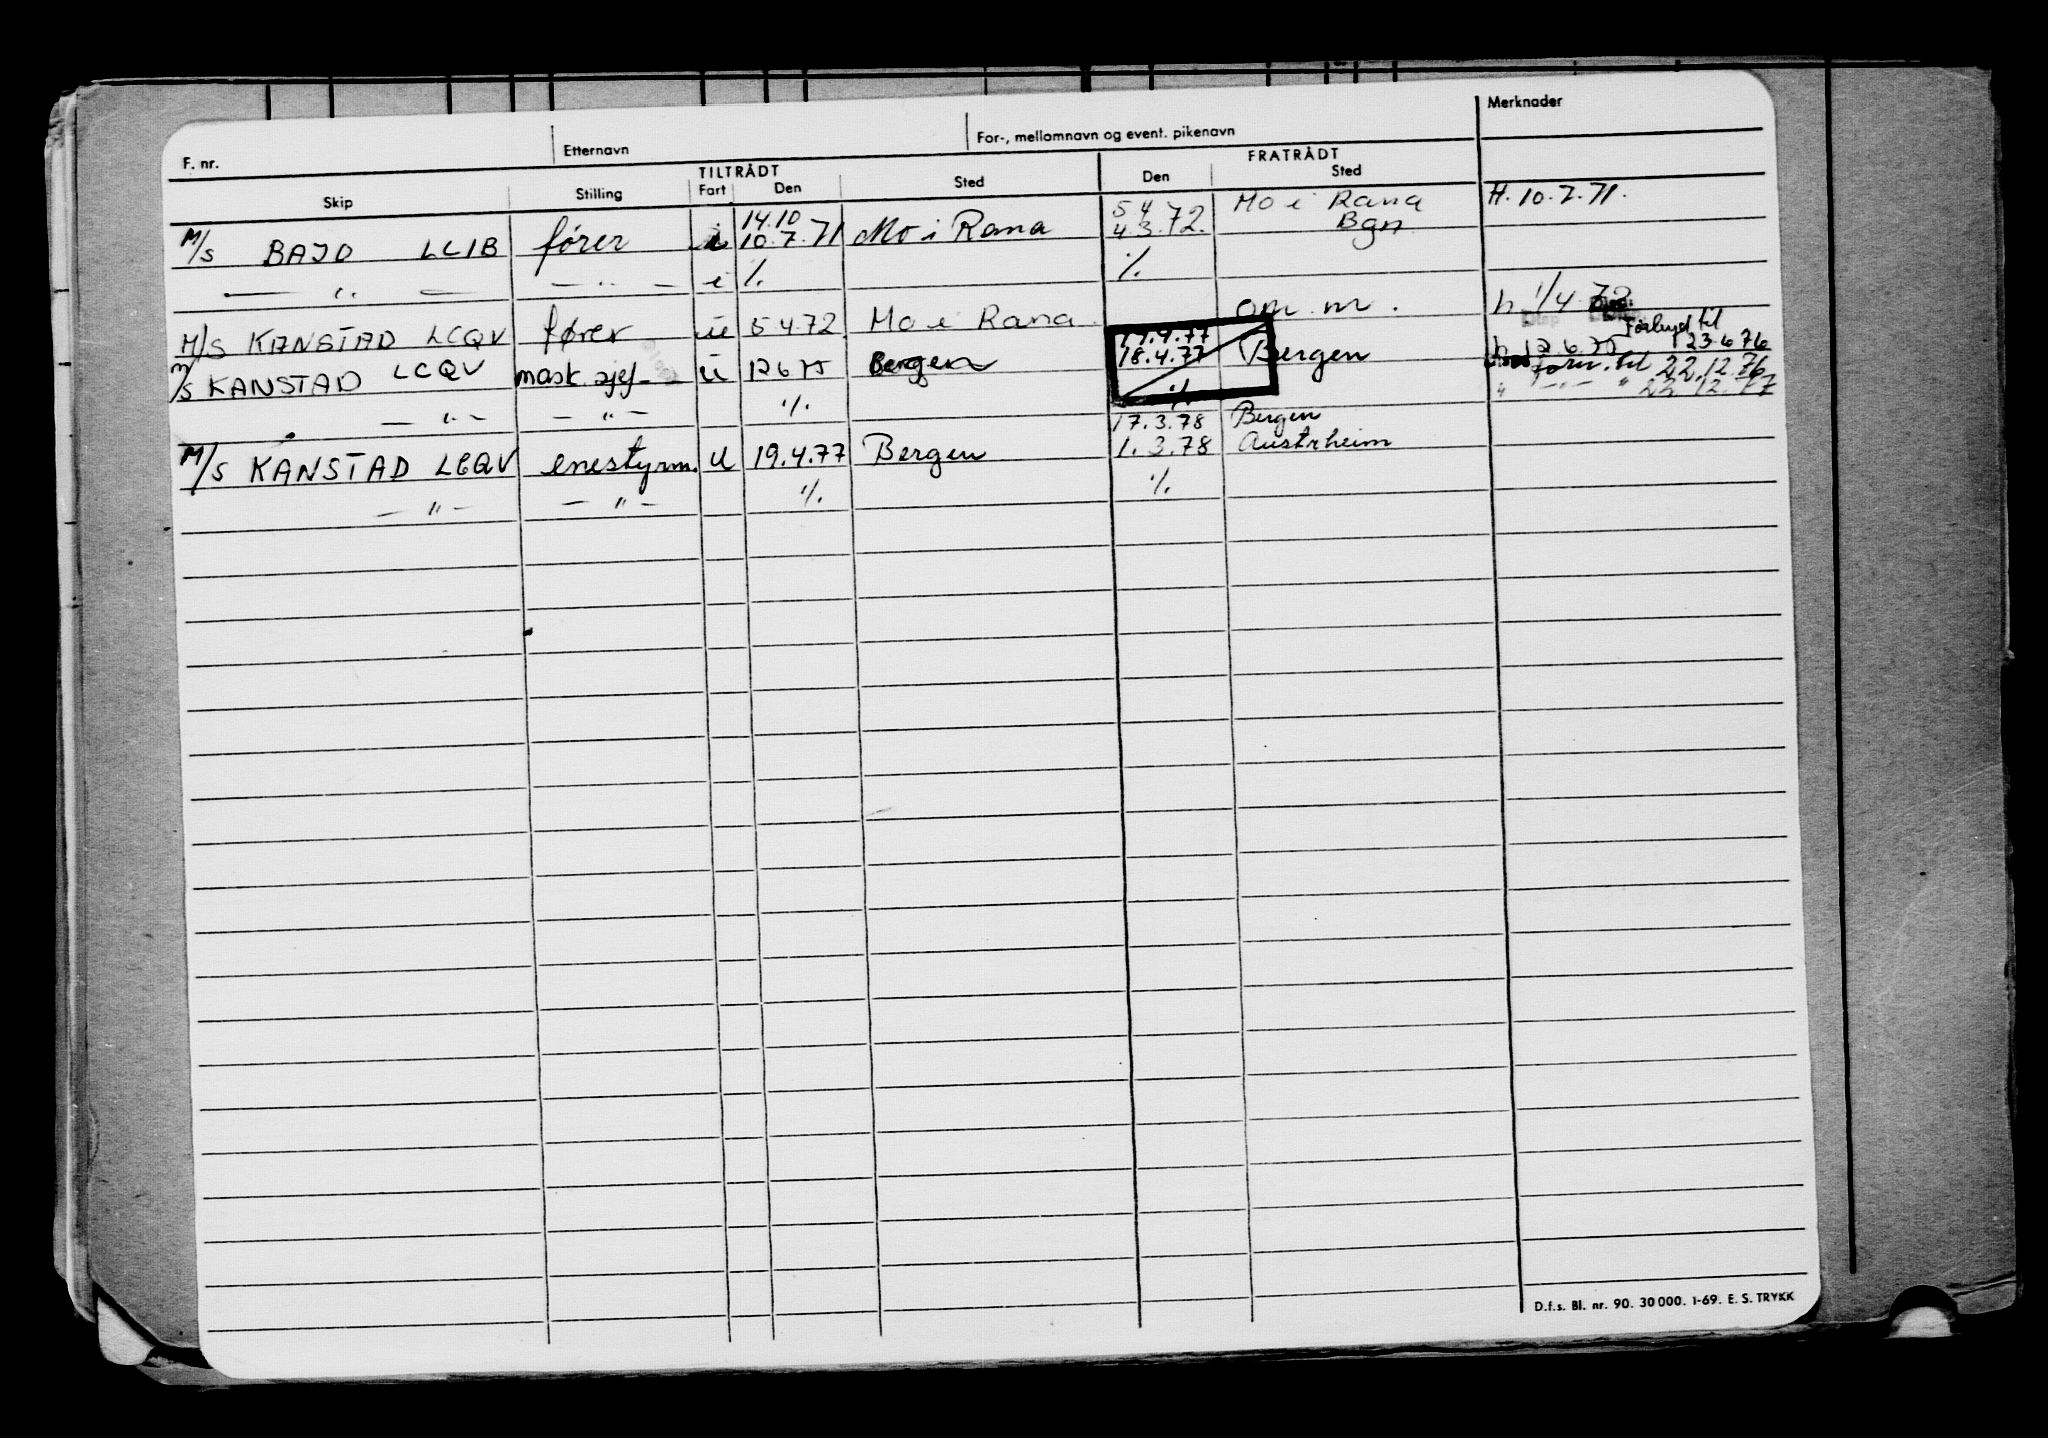 F. nr. Etternavn For-, mellomnavn og event. pikenavn Merknader
TILTRÅDT FRATRÅDT
Skip Stilling Fart Den Sted Den Sted
14.10 5 4 Mo i Rana H. 10.7.71.
M/S BAJO LCIB fører i 10.7.71 Mo i Rana 4 3.72. Bgn
— " — — " — i ·/. ·/.
om m. h 1/4 72
M/S KANSTAD LCQV fører u 5.4.72 Mo i Rana 19.4.77 Forlnyd til
M/S KANSTAD LCQV mask. sjef u 12 6 75 Bergen 18.4.77 Bergen h 12 6 75 23.6.76
forn. til 22.12.76
— " — — " — ·/. ·/. " — " — " 22.12.77
17.3.78 Bergen
M/S KANSTAD LCQV enestyrm. U 19.4.77 Bergen 1.3.78 Austrheim
— " — — " — ·/. ·/.
D.f.s. Bl. nr. 90. 30 000. 1-69. E. S. TRYKK